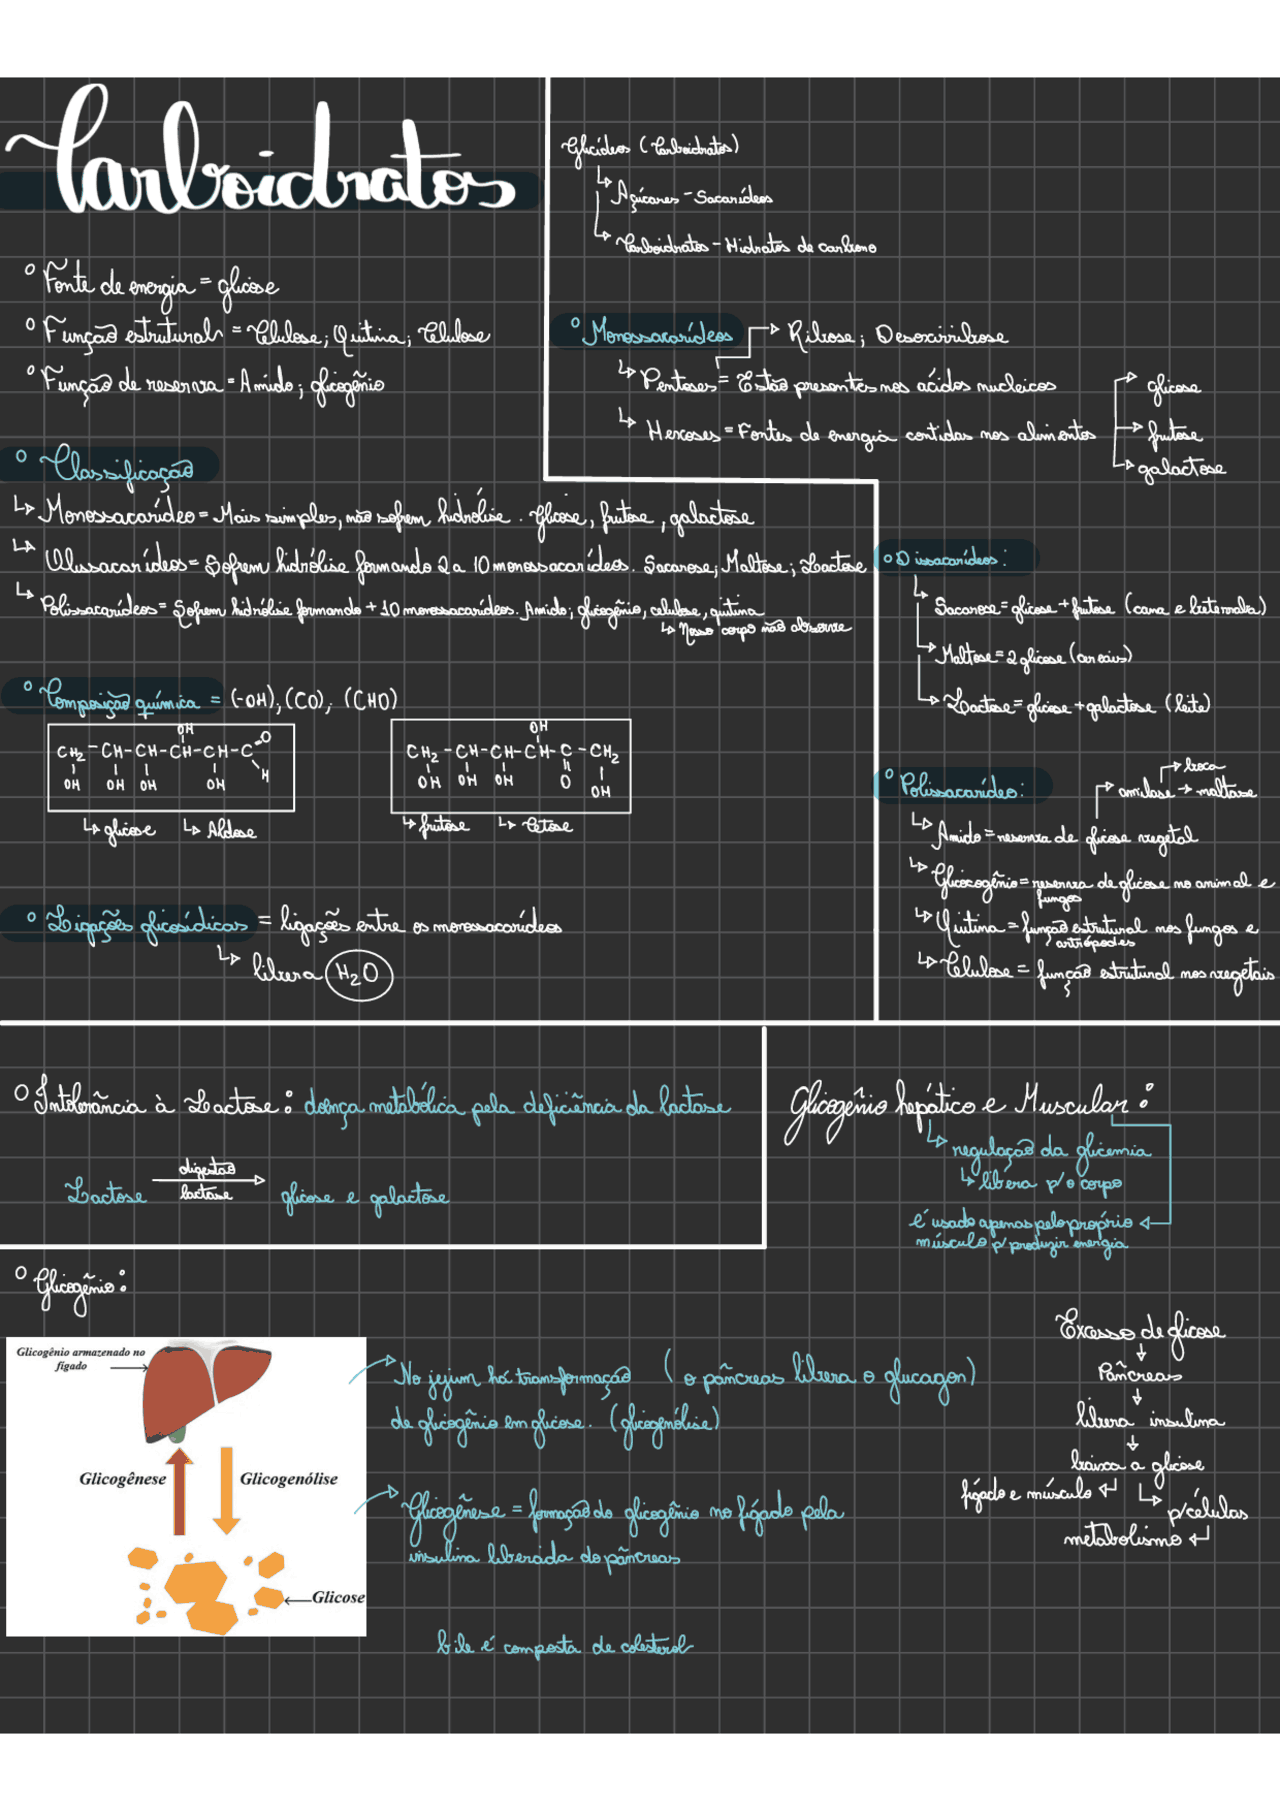 Carboidratos
° Fonte de energia = glicose
° Função estrutural = Celulose; Quitina; Celulose
° Função de reserva = Amido; glicogênio
° Classificação
↳ Monossacarídeo = Mais simples, não sofrem hidrólise. Glicose, frutose, galactose
↳ Olissacarídeos = Sofrem hidrólise formando 2 a 10 monossacarídeos. Sacarose; Maltose; Lactose
↳ Polissacarídeos = Sofrem hidrólise formando + 10 monossacarídeos. Amido; glicogênio, celulose, quitina
↳ Nosso corpo não absorve
° Composição química = (-OH); (CO); (CHO)
OH
CH2 - CH - CH - CH - CH - C = O
OH OH OH OH H
↳ glicose ↳ Aldose
OH
CH2 - CH - CH - CH - C - CH2
OH OH OH O OH
↳ frutose ↳ Cetose
° Ligações glicosídicas = ligações entre os monossacarídeos
↳ libera H2O
Glicídeos (Carboidratos)
↳ Açúcares - Sacarídeos
↳ Carboidratos - Hidratos de carbono
° Monossacarídeos → Ribose; Desoxirribose
↳ Pentoses = Estão presentes nos ácidos nucleicos
↳ Hexoses = Fontes de energia contidas nos alimentos
→ glicose
→ frutose
↳ galactose
° Dissacarídeos:
↳ Sacarose = glicose + frutose (cana e beterraba)
↳ Maltose = 2 glicose (cereais)
↳ Lactose = glicose + galactose (leite)
° Polissacarídeo:
→ boca
→ amilase → maltase
↳ Amido = reserva de glicose vegetal
↳ Glicocogênio = reserva de glicose no animal e
fungos
↳ Quitina = função estrutural nos fungos e
artrópodes
↳ Celulose = função estrutural nos vegetais
° Intolerância à Lactose: doença metabólica pela deficiência da lactase
digestão
Lactose → glicose e galactose
lactase
Glicogênio hepático e Muscular:
↳ regulação da glicemia
↳ libera p/ o corpo
é usado apenas pelo próprio
músculo p/ produzir energia
° Glicogênio:
Glicogênio armazenado no
fígado
Glicogênese
Glicogenólise
Glicose
→ No jejum há transformação (o pâncreas libera o glucagon)
de glicogênio em glicose. (glicogenólise)
→ Glicogênese = formação do glicogênio no fígado pela
insulina liberada do pâncreas
bile é composta de colesterol
Excesso de glicose
↓
Pâncreas
↓
libera insulina
↓
baixa a glicose
fígado e músculo ↲ ↳ p/ células
metabolismo ↲